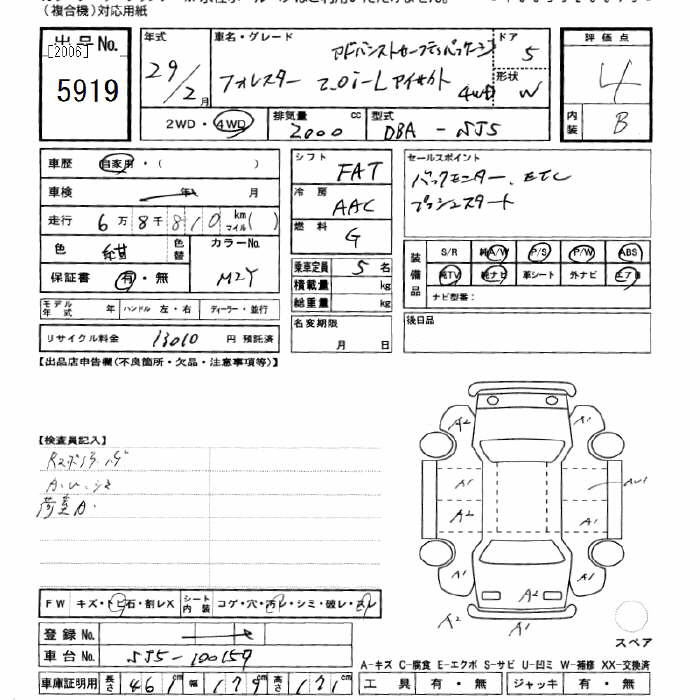 (複合機)対応用紙
出品No.
[2006]
5919
年式 29/2月
車名・グレード
フォレスター 2.0i-L アイサイト 4WD
ドア 5
形状 W
2WD・4WD
排気量 2000 cc
型式 DBA-SJ5
評価点 4
内装 B
車歴 自家用・( )
車検 年 月
走行 6万8千810 km マイル( )
色 紺
色替
カラーNo. M2Y
保証書 有・無
モデル年式 年 ハンドル 左・右 ディーラー・並行
リサイクル料金 13010 円 預託済
シフト FAT
冷房 AAC
燃料 G
乗車定員 5 名
積載量 kg
総重量 kg
名変期限
月 日
セールスポイント
バックモニター、ETC
プッシュスタート
装備品
S/R 純A/W P/S P/W ABS
純TV 純ナビ 革シート 外ナビ エアB
ナビ型番:
後日品
【出品店申告欄(不良箇所・欠品・注意事項等)】
【検査員記入】
荷室A.
FW キズ・トビ石・割レX シート内装 コゲ・穴・汚レ・シミ・破レ・スレ
登録No.
車台No. SJ5-100159
車庫証明用 長さ 461 cm 幅 179 cm 高さ 171 cm
A2
A1
A1
A2
A1
A1
A1
A1
A2
A2
A1
スペア
A-キズ C-腐食 E-エクボ S-サビ U-凹ミ W-補修 XX-交換済
工具 有・無 ジャッキ 有・無